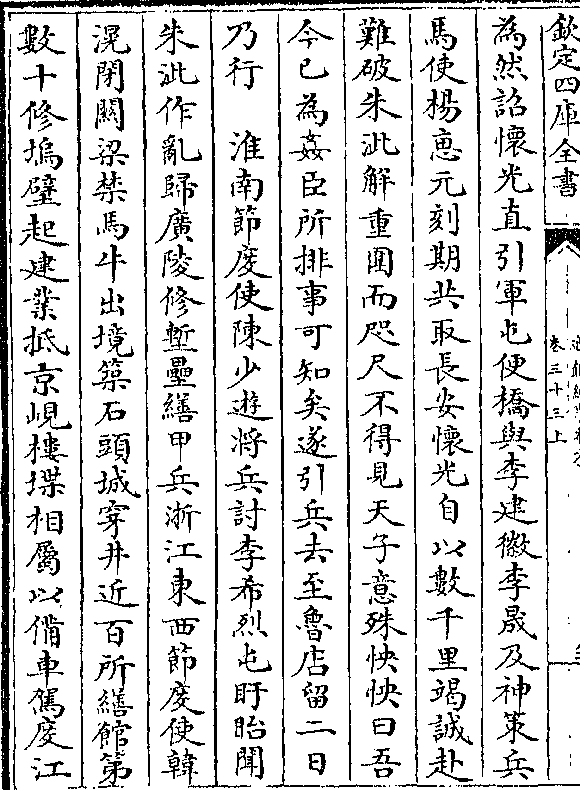 欽定四庫全書
卷三十三上
為然詔懷光直引軍屯便橋與李建徽李晟及神策兵
馬使楊惠元刻期共取長安懷光自以數千里竭誠赴
難破朱泚解重圍而咫尺不得見天子意殊怏怏曰吾
今已為姦臣所排事可知矣遂引兵去至魯店留二日
乃行　淮南節度使陳少遊將兵討李希烈屯盱眙聞
朱泚作亂歸廣陵修塹壘繕甲兵浙江東西節度使韓
滉閉關梁禁馬牛出境築石頭城穿井近百所繕館第
數十修塢壁起建業抵京峴樓堞相屬以備車駕度江